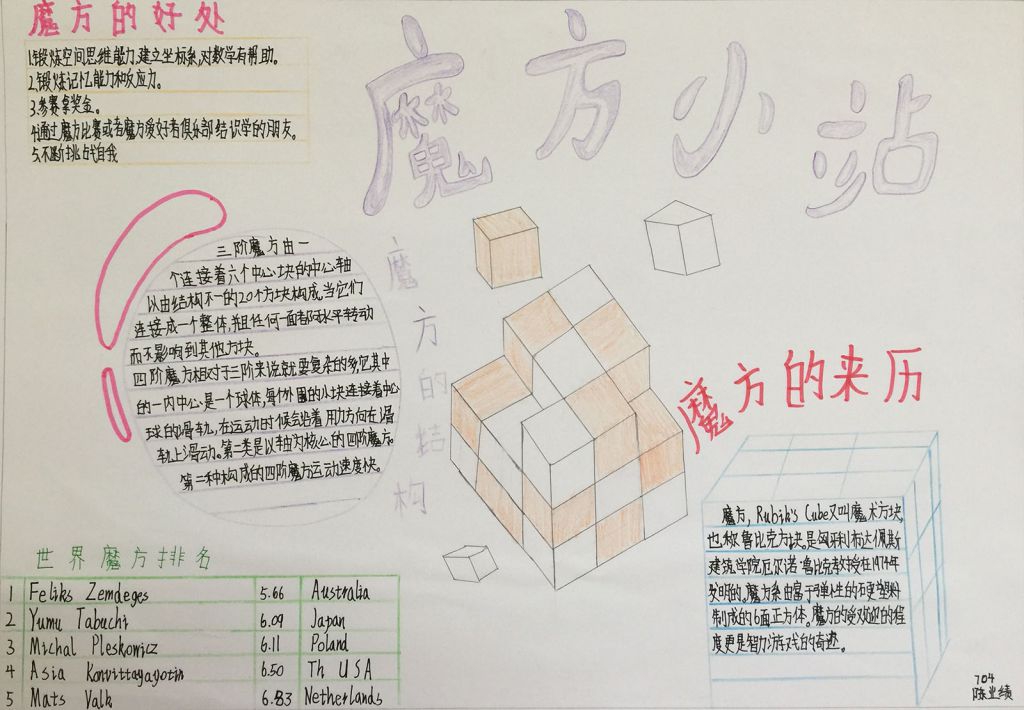 魔方的好处
1.锻炼空间思维能力,建立坐标系,对数学有帮助。
2.锻炼记忆能力和反应力。
3.参赛拿奖金。
4.通过魔方比赛或者魔方爱好者俱乐部结识学的朋友。
5.不断挑战自我
魔方小站
三阶魔方由一
个连接着六个中心块的中心轴
以由结构不一的20个方块构成,当它们
连接成一个整体,并且任何一面都可水平转动
而不影响到其他方块。
四阶魔方相对于三阶来说就要复杂的多,它其中
的一内中心是一个球体,每个外围的小块连接着中心
球的滑轨,在运动时候会沿着用力方向在滑
轨上滑动。第二类是以轴为核心的四阶魔方。
第二种构成的四阶魔方运动速度快。
魔方的结构
魔方的来历
魔方, Rubik's Cube又叫魔术方块,
也称鲁比克方块,是匈牙利布达佩斯
建筑学院厄尔诺·鲁比克教授在1974年
发明的。魔方系由富于弹性的硬塑料
制成的6面正方体。魔方的受欢迎的程
度更是智力游戏的奇迹。
世界魔方排名
1 Feliks Zemdegs 5.66 Australia
2 Yumu Tabuchi 6.09 Japan
3 Michal Pleskowicz 6.11 Poland
4 Asia 6.50 Th USA
5 Mats Valk 6.83 Netherlands
704
陈业绩